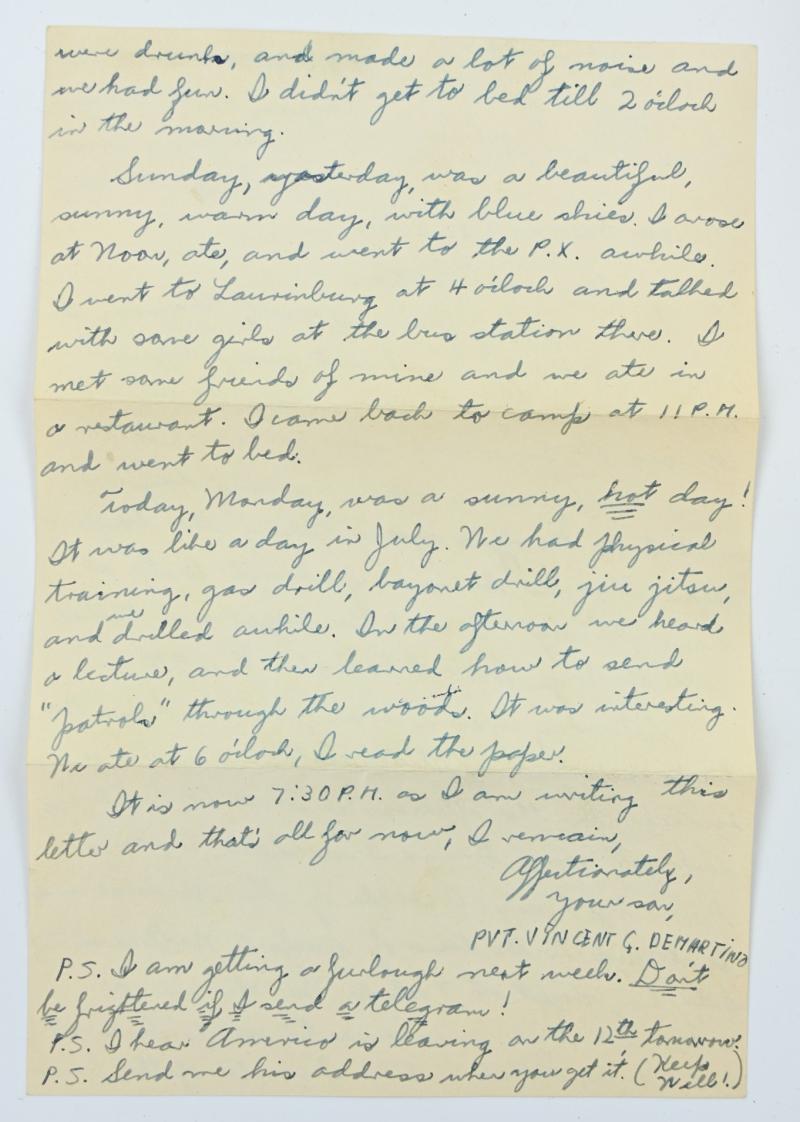 were drunk, and made a lot of noise and
we had fun. I didn't get to bed till 2 o'cloch
in the morning.
Sunday, yesterday, was a beautiful,
sunny, warm day, with blue skies. I arose
at Noon, ate, and went to the P.X. awhile.
I went to Laurinburg at 4 o'cloch and talked
with some girls at the bus station there. I
met some friends of mine and we ate in
a restaurant. I came back to camp at 11 P.M.
and went to bed.
Today, Monday, was a sunny, hot day!
It was like a day in July. We had physical
training, gas drill, bayonet drill, jiu jitsu,
and we drilled awhile. In the afternoon we heard
a lecture, and then learned how to send
"patrols" through the woods. It was interesting.
We ate at 6 o'cloch, I read the paper.
It is now 7:30 P.M. as I am writing this
letter and that's all for now, I remain,
Affectionately,
Your son,
PVT. VINCENT G. DEMARTINO
P.S. I am getting a furlough next week. Don't
be frightened if I send a telegram!
P.S. I hear Americo is leaving on the 12th tomorrow.
P.S. Send me his address when you get it. (Keep
Well!)